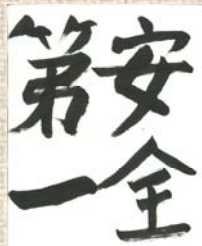 安全
第一